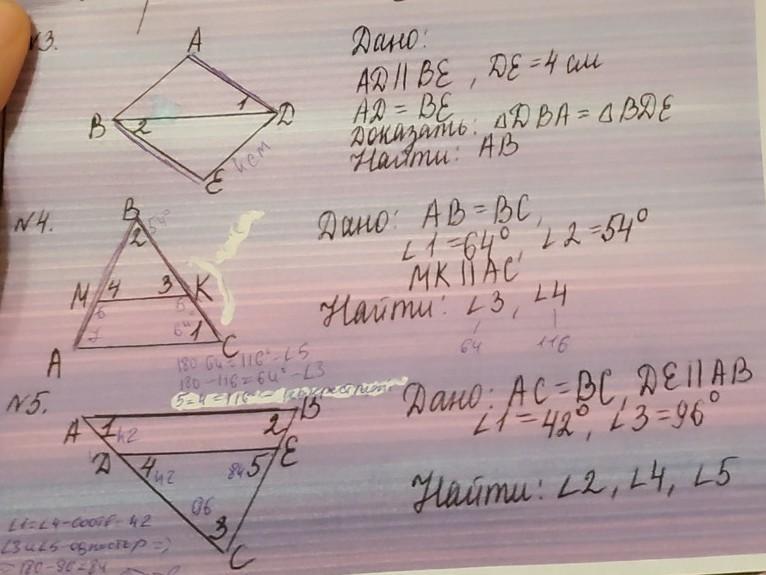 №3.
A
B
2
1
D
E
4 см
Дано:
AD || BE , DE = 4 см
AD = BE
Доказать: △DBA = △BDE
Найти: AB
№4.
B
2
54°
M
4
3
K
6
1
A
C
180-64=116°-∠5
180-116=64°-∠3
5=4=116°
Дано: AB = BC,
∠1 = 64°, ∠2 = 54°
MK || AC
Найти: ∠3, ∠4
64
116
№5.
A
1
42
2
B
D
4
42
84
5
E
96
3
C
∠1=∠4-соотв-42
∠3 и ∠5-одностор =>
=180-96=84
Дано: AC = BC, DE || AB
∠1 = 42°, ∠3 = 96°
Найти: ∠2, ∠4, ∠5